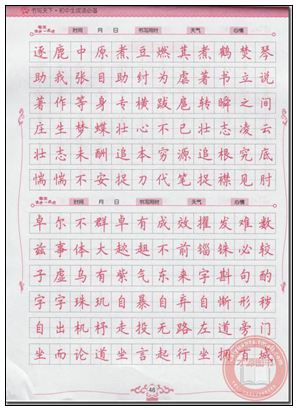 书写天下·初中生成语必备
每日进步一点点 时间 月 日 书写用时 天气 心情
逐鹿中原煮豆燃萁煮鹤焚琴
助我张目助纣为虐著书立说
著作等身专横跋扈转瞬之间
庄生梦蝶壮心不已壮志凌云
壮志未酬追本穷源追根究底
惴惴不安捉刀代笔捉襟见肘
每日进步一点点 时间 月 日 书写用时 天气 心情
卓尔不群卓有成效擢发难数
兹事体大趑趄不前锱铢必较
子虚乌有紫气东来字斟句酌
字字珠玑自暴自弃自惭形秽
自出机杼走投无路左道旁门
坐而论道坐言起行坐拥百城
46